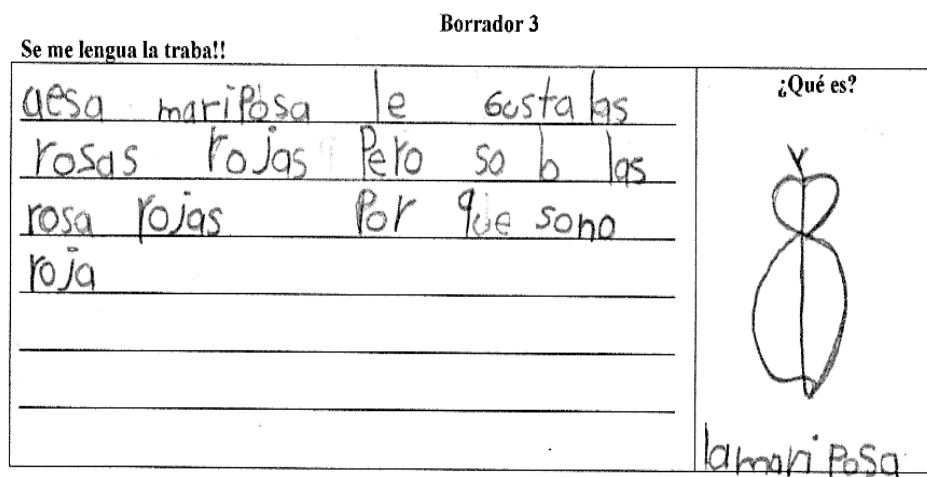 Borrador 3
Se me lengua la traba!!
aesa mariposa le gusta las
rosas rojas Pero so lo las
rosa rojas Por que sono
roja
¿Qué es?
la mari Posa